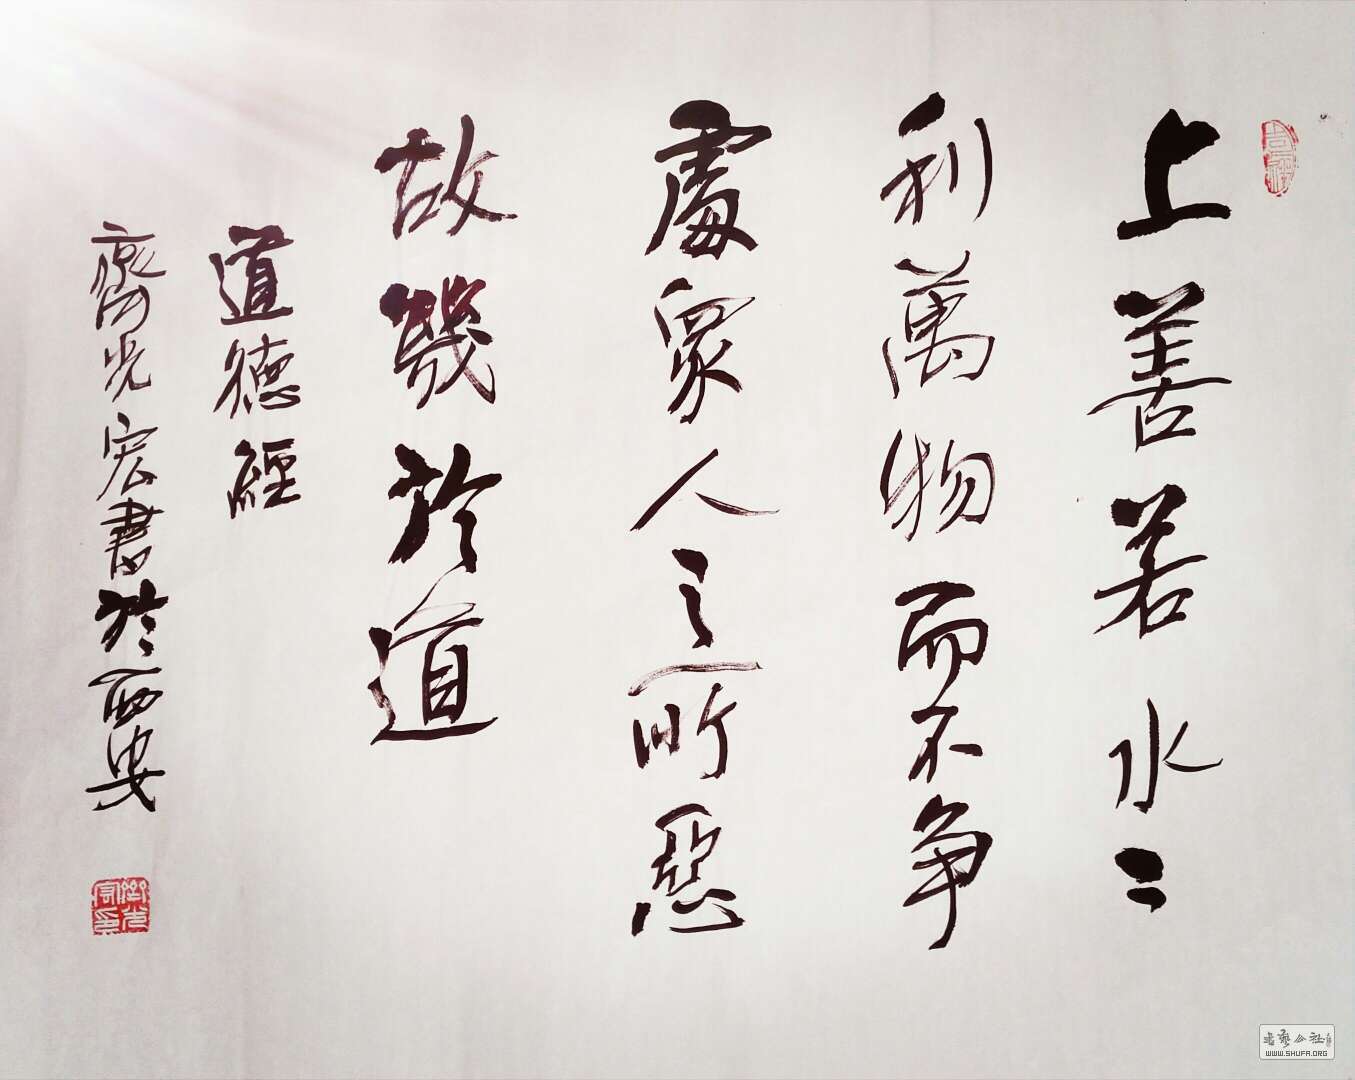 上善若水二
利萬物而不争
處衆人之所惡
故幾於道
道德經
齊光宏書於西安
WWW.SHUFA.ORG